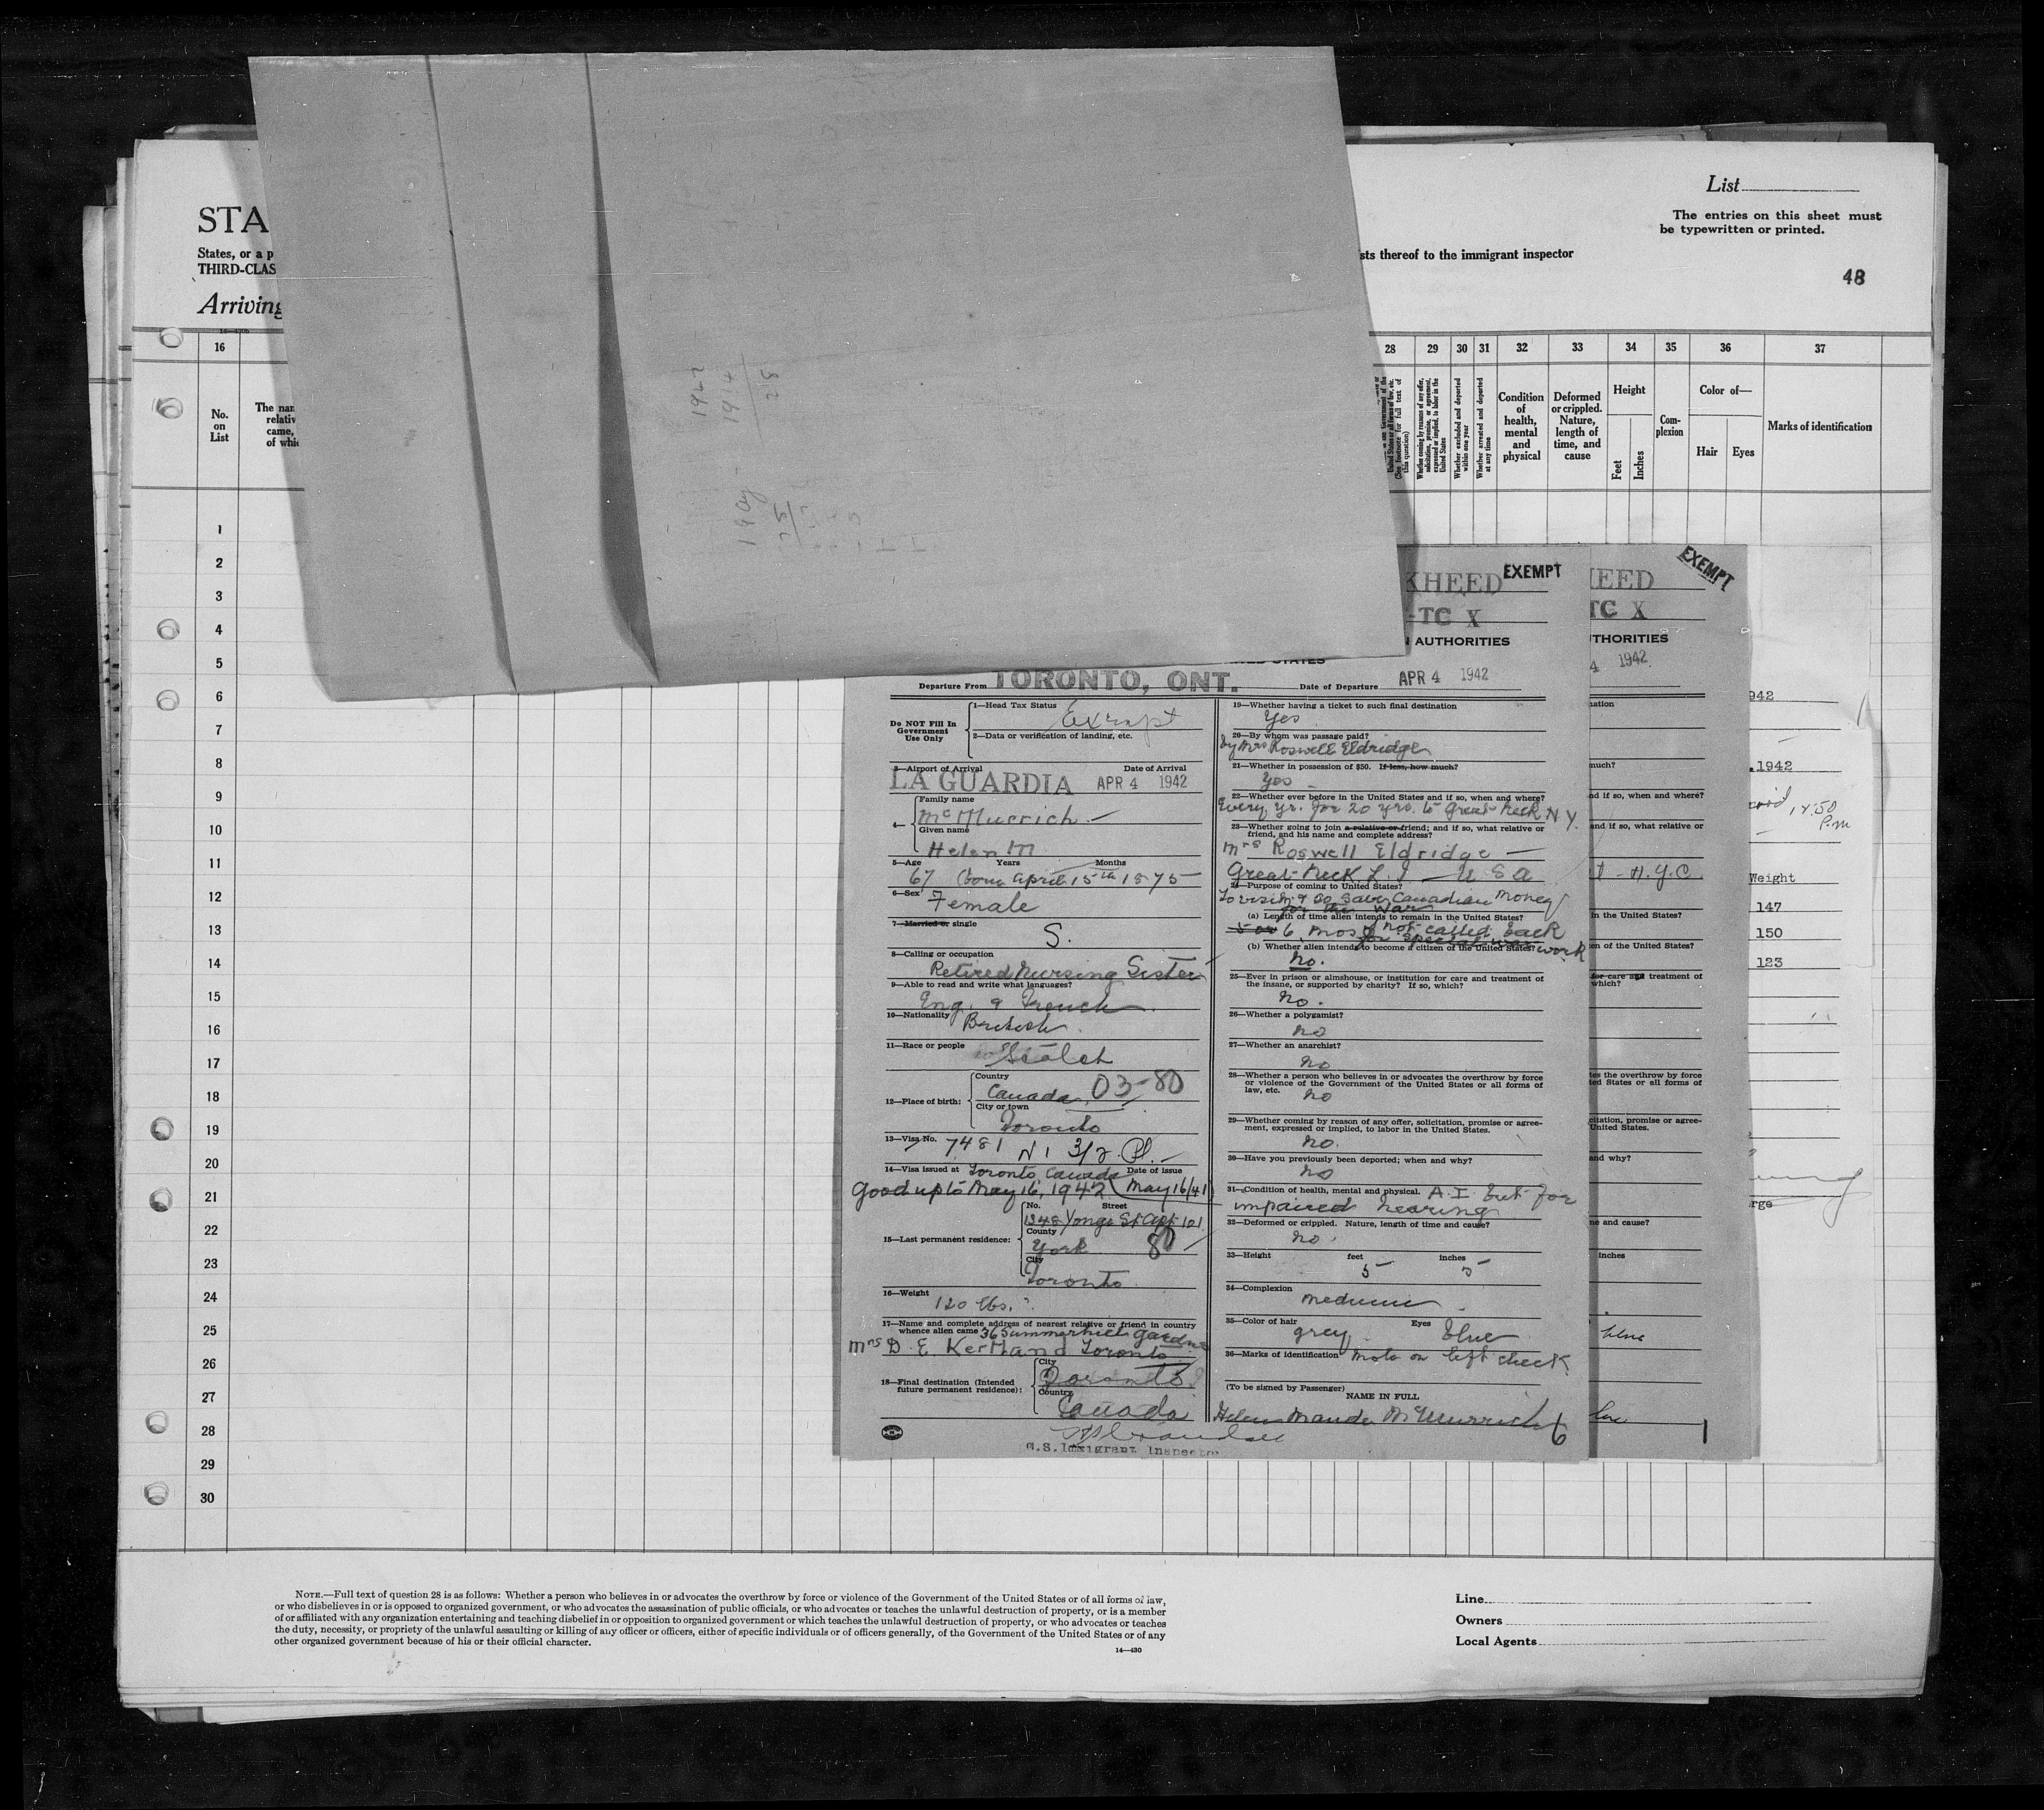 List
The entries on this sheet must
be typewritten or printed.
STA
States, or a p
THIRD-CLAS
sts thereof to the immigrant inspector
48
Arriving
16
28 29 30 31 32 33 34 35 36 37
No.
on
List
The nar
relativ
came,
of whic
Whether excluded and deported
within one year
Whether arrested and deported
at any time
Condition
of
health,
mental
and
physical
Deformed
or crippled.
Nature,
length of
time, and
cause
Height
Feet
Inches
Com-
plexion
Color of—
Hair Eyes
Marks of identification
1942
1914
28
1
2
3
4
5
6
7
8
9
10
11
12
13
14
15
16
17
18
19
20
21
22
23
24
25
26
27
28
29
30
KHEED EXEMPT
-TC X
AUTHORITIES
Departure From TORONTO, ONT. Date of Departure APR 4 1942
Do NOT Fill In
Government
Use Only
1—Head Tax Status Exempt
2—Data or verification of landing, etc.
3—Airport of Arrival Date of Arrival
LA GUARDIA APR 4 1942
4—
Family name
McMurrich
Given name
Helen M
5—Age Years Months
67 (born April 15th 1875
6—Sex Female
7—Married or single
S.
8—Calling or occupation
Retired Nursing Sister
9—Able to read and write what languages?
Eng. & French
10—Nationality British
11—Race or people Scotch
12—Place of birth:
Country
Canada 03-80
City or town
Toronto
13—Visa No. 7481 N1 3/2
14—Visa issued at Toronto Canada Date of issue
Good up to May 16, 1942 (May 16/41)
15—Last permanent residence:
No. Street
1348 Yonge St Apt 101
County
York 80
City
Toronto
16—Weight
120 lbs.
17—Name and complete address of nearest relative or friend in country
whence alien came 36 Summerhill Gardens
Mrs D. E Kertland Toronto
18—Final destination (Intended
future permanent residence):
City
Toronto
Country
Canada
U.S. Immigrant Inspector
19—Whether having a ticket to such final destination
Yes
20—By whom was passage paid?
by Mrs Roswell Eldridge
21—Whether in possession of $50. If less, how much?
Yes
22—Whether ever before in the United States and if so, when and where?
Every yr. for 20 yrs. to Great Neck N Y.
23—Whether going to join a relative or friend; and if so, what relative or
friend, and his name and complete address?
Mrs Roswell Eldridge
Great Neck L. I — U S A
24—Purpose of coming to United States?
To visit & to save Canadian money
for the war
(a) Length of time alien intends to remain in the United States?
5 or 6 mos if not called back
for special war work
(b) Whether alien intends to become a citizen of the United States?
No.
25—Ever in prison or almshouse, or institution for care and treatment of
the insane, or supported by charity? If so, which?
No.
26—Whether a polygamist?
No
27—Whether an anarchist?
No
28—Whether a person who believes in or advocates the overthrow by force
or violence of the Government of the United States or all forms of
law, etc. No
29—Whether coming by reason of any offer, solicitation, promise or agree-
ment, expressed or implied, to labor in the United States.
No.
30—Have you previously been deported; when and why?
No
31—Condition of health, mental and physical. A.I but for
impaired hearing
32—Deformed or crippled. Nature, length of time and cause?
No.
33—Height feet inches
5 5
34—Complexion
medium
35—Color of hair Eyes
grey blue
36—Marks of identification Mole on left cheek
(To be signed by Passenger)
NAME IN FULL
Helen Maude McMurrich 6
HEED
EXEMPT
TC X
THORITIES
4 1942
nation
much?
nd if so, when and where?
and if so, what relative or
N.Y.C.
in the United States?
en of the United States?
for care and treatment of
which?
es the overthrow by force
ted States or all forms of
citation, promise or agree-
United States.
and why?
ne and cause?
inches
blue
1
942
.1942
P.M
Weight
147
150
123
rge
NOTE.—Full text of question 28 is as follows: Whether a person who believes in or advocates the overthrow by force or violence of the Government of the United States or of all forms of law,
or who disbelieves in or is opposed to organized government, or who advocates the assassination of public officials, or who advocates or teaches the unlawful destruction of property, or is a member
of or affiliated with any organization entertaining and teaching disbelief in or opposition to organized government or which teaches the unlawful destruction of property, or who advocates or teaches
the duty, necessity, or propriety of the unlawful assaulting or killing of any officer or officers, either of specific individuals or of officers generally, of the Government of the United States or of any
other organized government because of his or their official character.
14—430
Line
Owners
Local Agents